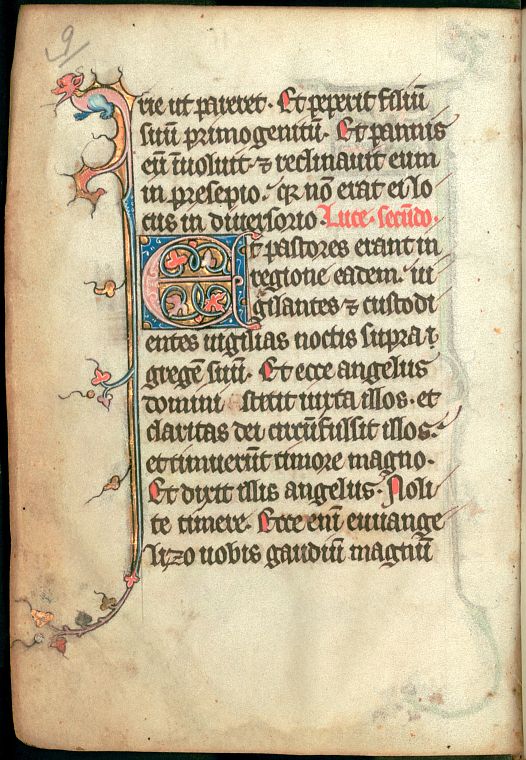 9
rie ut pareret. Et peperit filiū
suū primogenitū. Et pannis
eū īuoluit ⁊ reclinauit eum
in presepio. qr nō erat ei lo
cus in diuersorio. Luce. secūdo.
Et pastores erant in
regione eadem. ui
gilantes ⁊ custodi
entes uigilias noctis supra
gregē suū. Et ecce angelus
domini stetit iuxta illos. et
claritas dei circūfulsit illos.
et timuerūt timore magno.
Et dixit illis angelus. Noli
te timere. Ecce enī euuange
lizo uobis gaudiū magnū